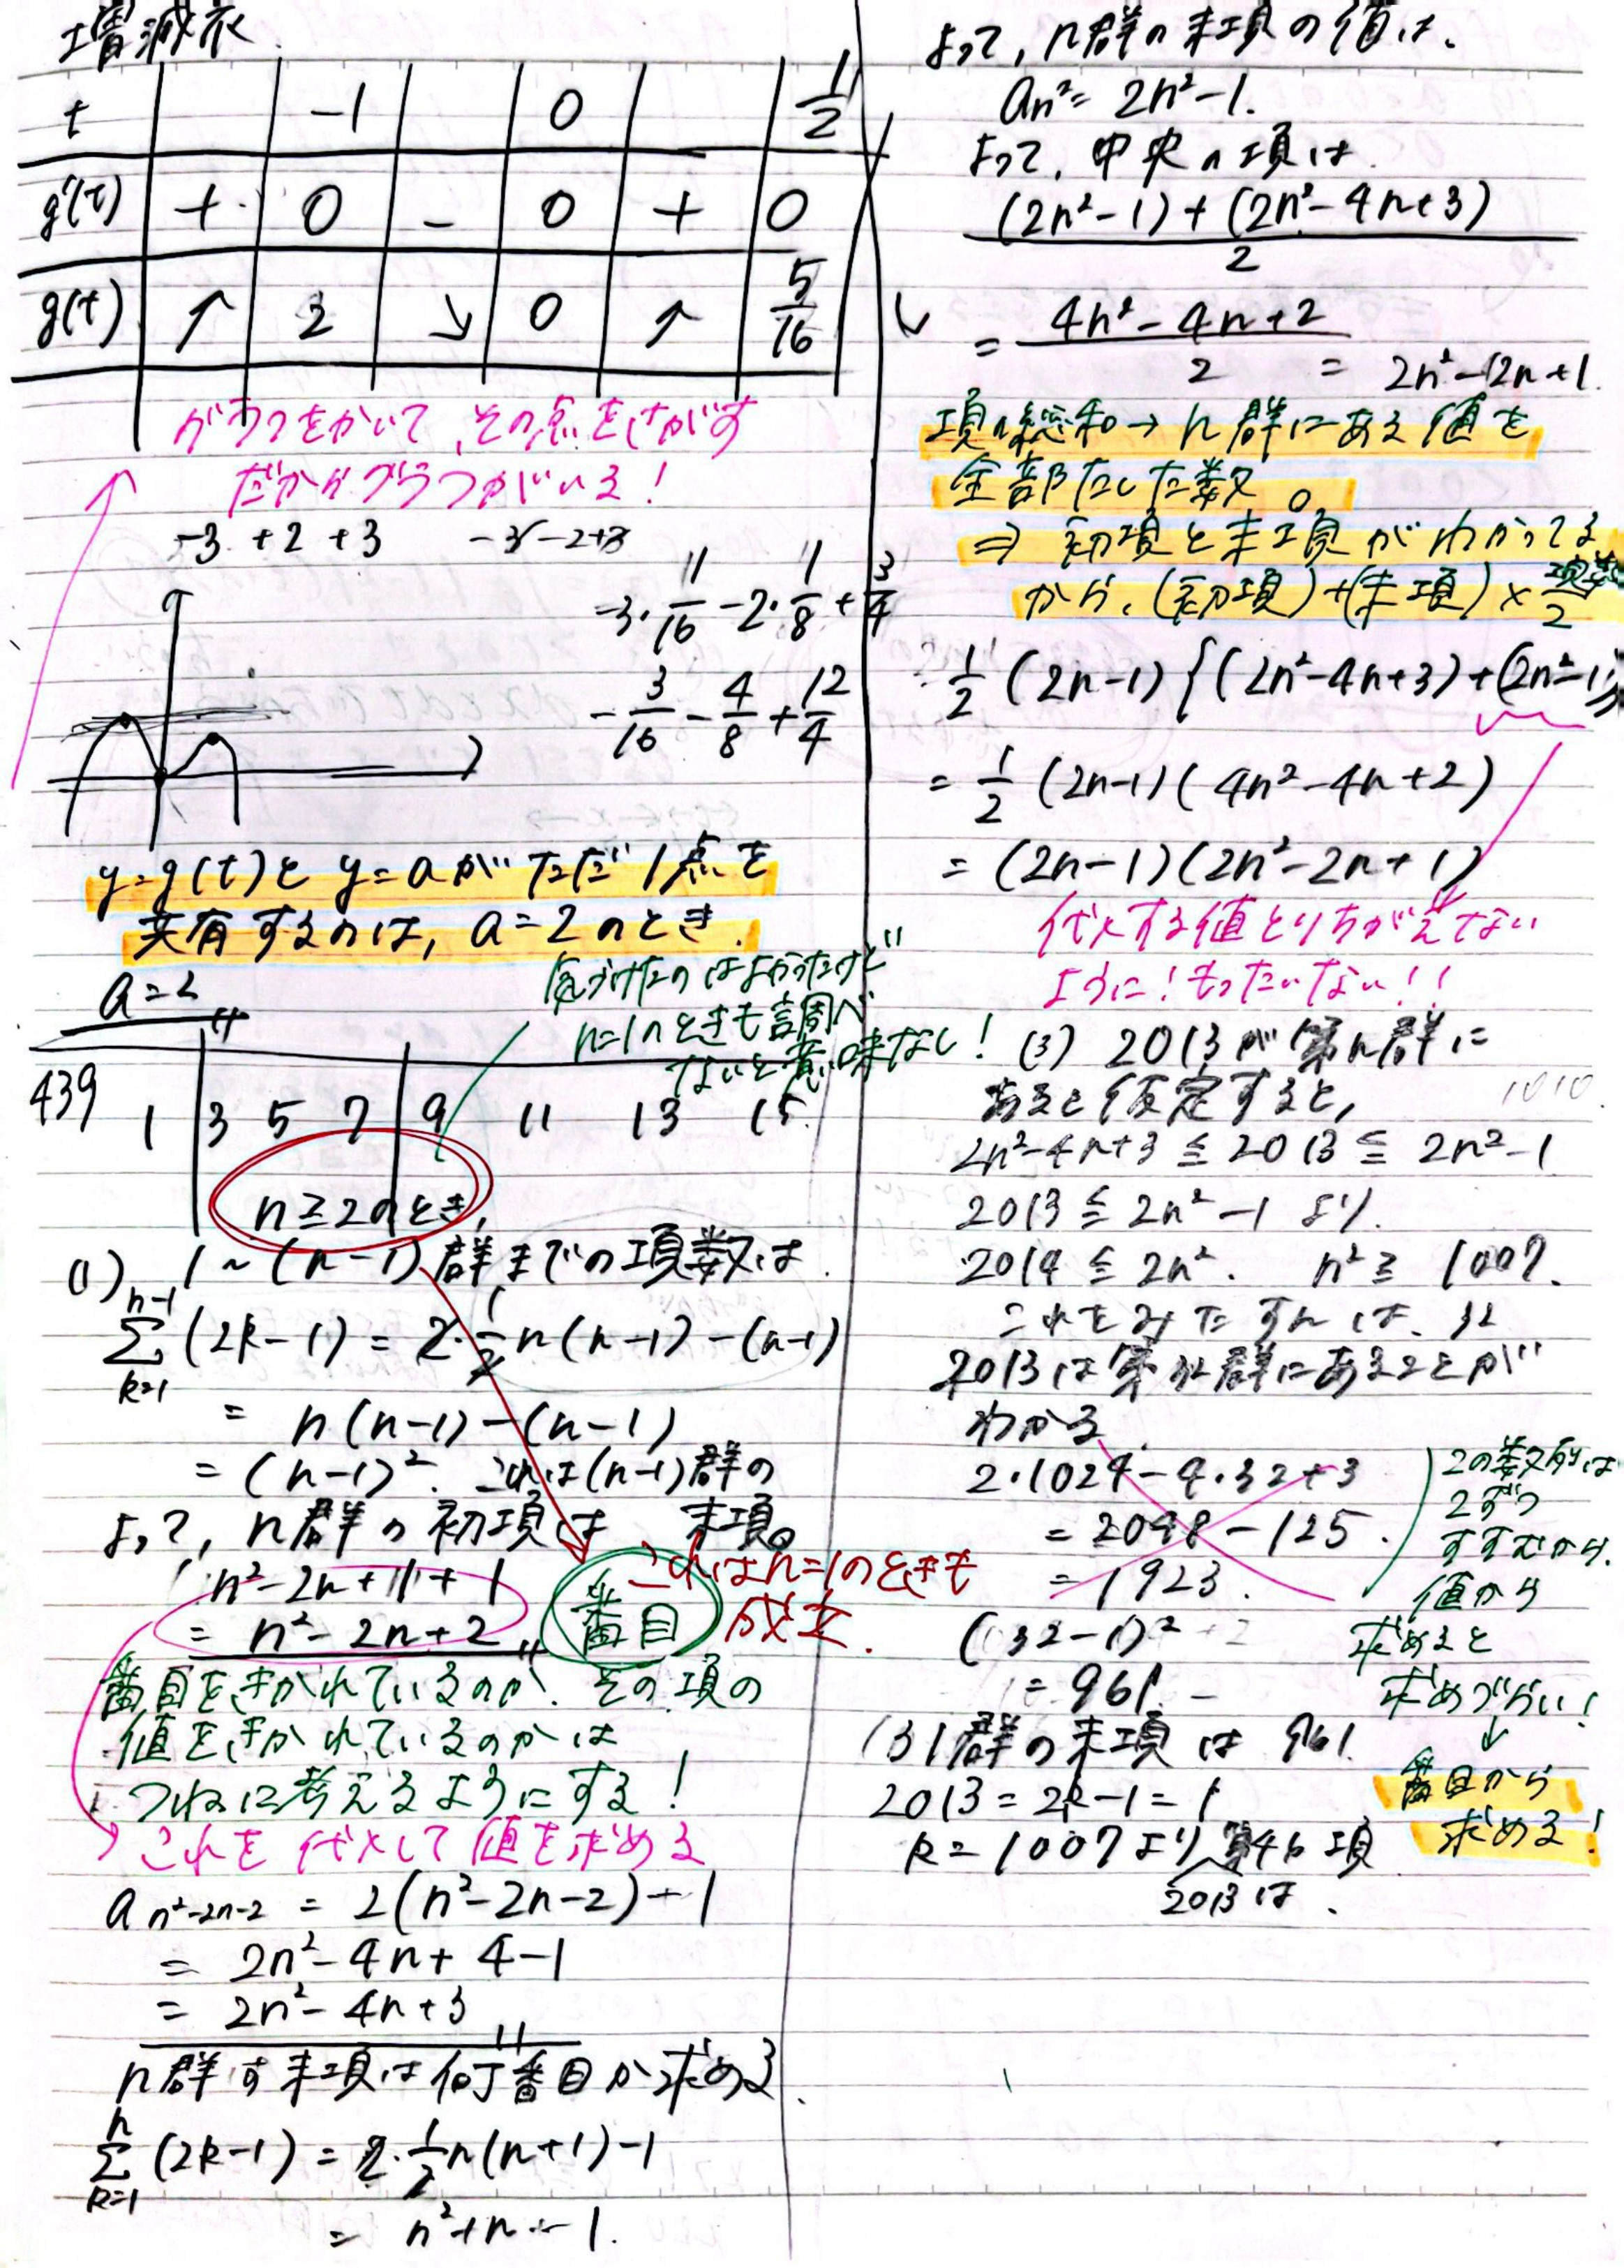 増減表
t -1 0 1/2
g'(t) + 0 - 0 + 0
g(t) ↗ 2 ↘ 0 ↗ 5/16 ↘
グラフをかいて、その点をさがす
だからグラフがいる!
-3 +2 +3 -3-2+3
-3・1/16 -2・1/8 + 3/4
-3/16 - 4/8 + 12/4
y=g(t)と y=aが ただ1点を
共有するのは, a=2のとき.
a=2
気づけたのはよかったけど
n=1のときも調べ
ないと意味なし!
439 1 | 3 5 7 | 9 11 13 15
n≧2のとき,
(1) 1~(n-1)群までの項数は
Σ[k=1, n-1] (2k-1) = 2・1/2 n(n-1)-(n-1)
= n(n-1)-(n-1)
= (n-1)². これは(n-1)群の
末項。
よって, n群の初項は
n²-2n+1+1
= n²-2n+2 番目
これはn=1のときも
成立.
番目をきかれているのか、その項の
値をきかれているのかは
つねに考えるようにする!
これを代入して値を求める
a n²-2n-2 = 2(n²-2n-2)-1
= 2n²-4n+4-1
= 2n²-4n+3
n群の末項は何番目か求める.
Σ[k=1, n] (2k-1) = 2・1/2 n(n+1)-1
= n²+n-1.
よって, n群の末項の値は、
an² = 2n²-1.
よって, 中央の項は.
(2n²-1)+(2n²-4n+3) / 2
= 4n²-4n+2 / 2 = 2n²-2n+1.
項の総和→n群にある値を
全部たした数。
⇒ 初項と末項がわかってる
から、(初項)+(末項)×項数/2
1/2 (2n-1){(2n²-4n+3)+(2n²-1)}
= 1/2 (2n-1)(4n²-4n+2)
= (2n-1)(2n²-2n+1)
代入する値とりちがえてない
ように!もったいない!!
(3) 2013が第n群に
あると仮定すると,
1010
2n²-4n+3 ≦ 2013 ≦ 2n²-1
2013 ≦ 2n²-1 より.
2014 ≦ 2n². n² ≧ 1007.
これをみたすnは、32
2013は第32群にあることが
わかる.
2・1024-4・32+3
= 2048-125.
= 1923.
2の数列は
2ずつ
すすむから.
値から
求めると
求めづらい!
↓
番目から
求める!
(32-1)²
= 961
(31群の末項は 961.
2013=2k-1=1
k=1007より 第46項
2013は.